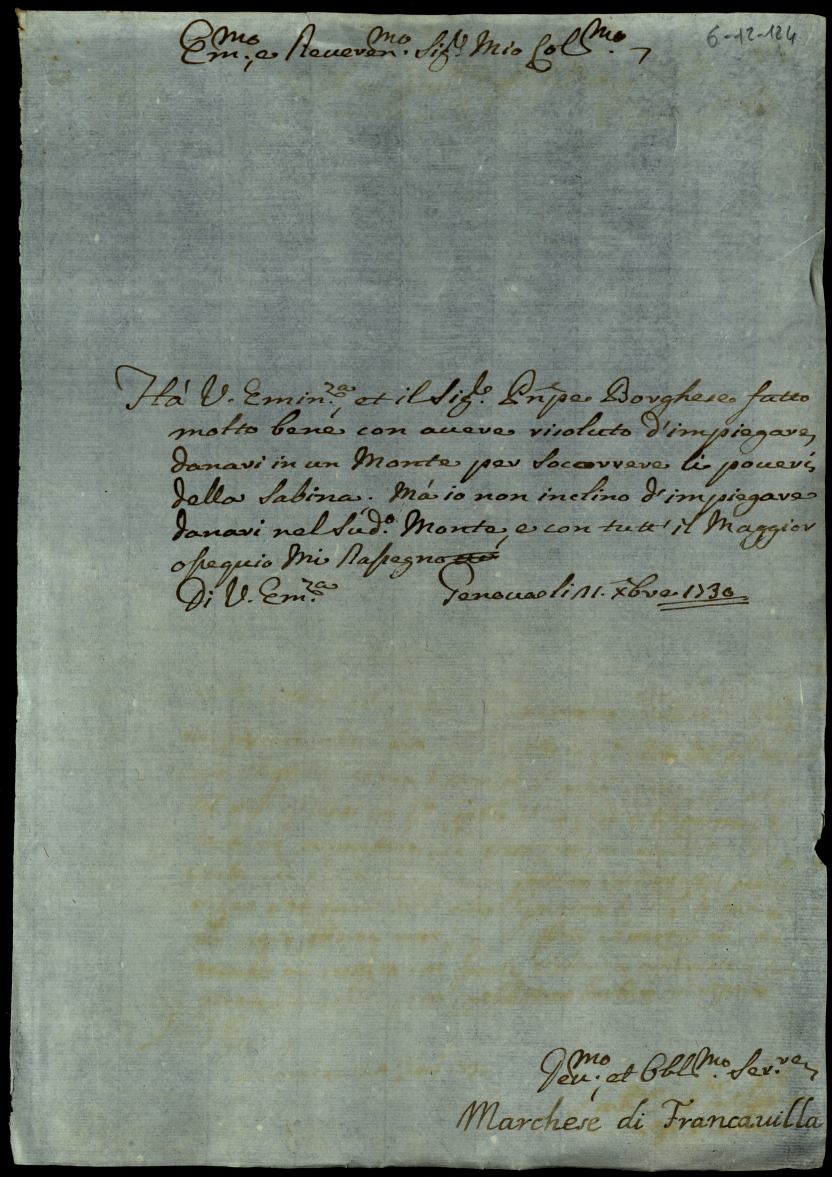 6-12-124
Em.mo, e Reveren.mo Sig.r Mio Col.mo
Há V. Emin.za, et il Sig.le Pñpe Borghese fatto
molto bene con avere risoluto d'impiegare
danari in un Monte per Socorrere li poveri
della Sabina. Má io non inclino d'impiegare
danari nel Sud.o Monte, e con tutt'il Maggior
ossequio Mi Rassegno
Di V. Em.za Genova li 11. Xbre 1730
Dev.mo, et Obbl.mo Ser.re
Marchese di Francavilla